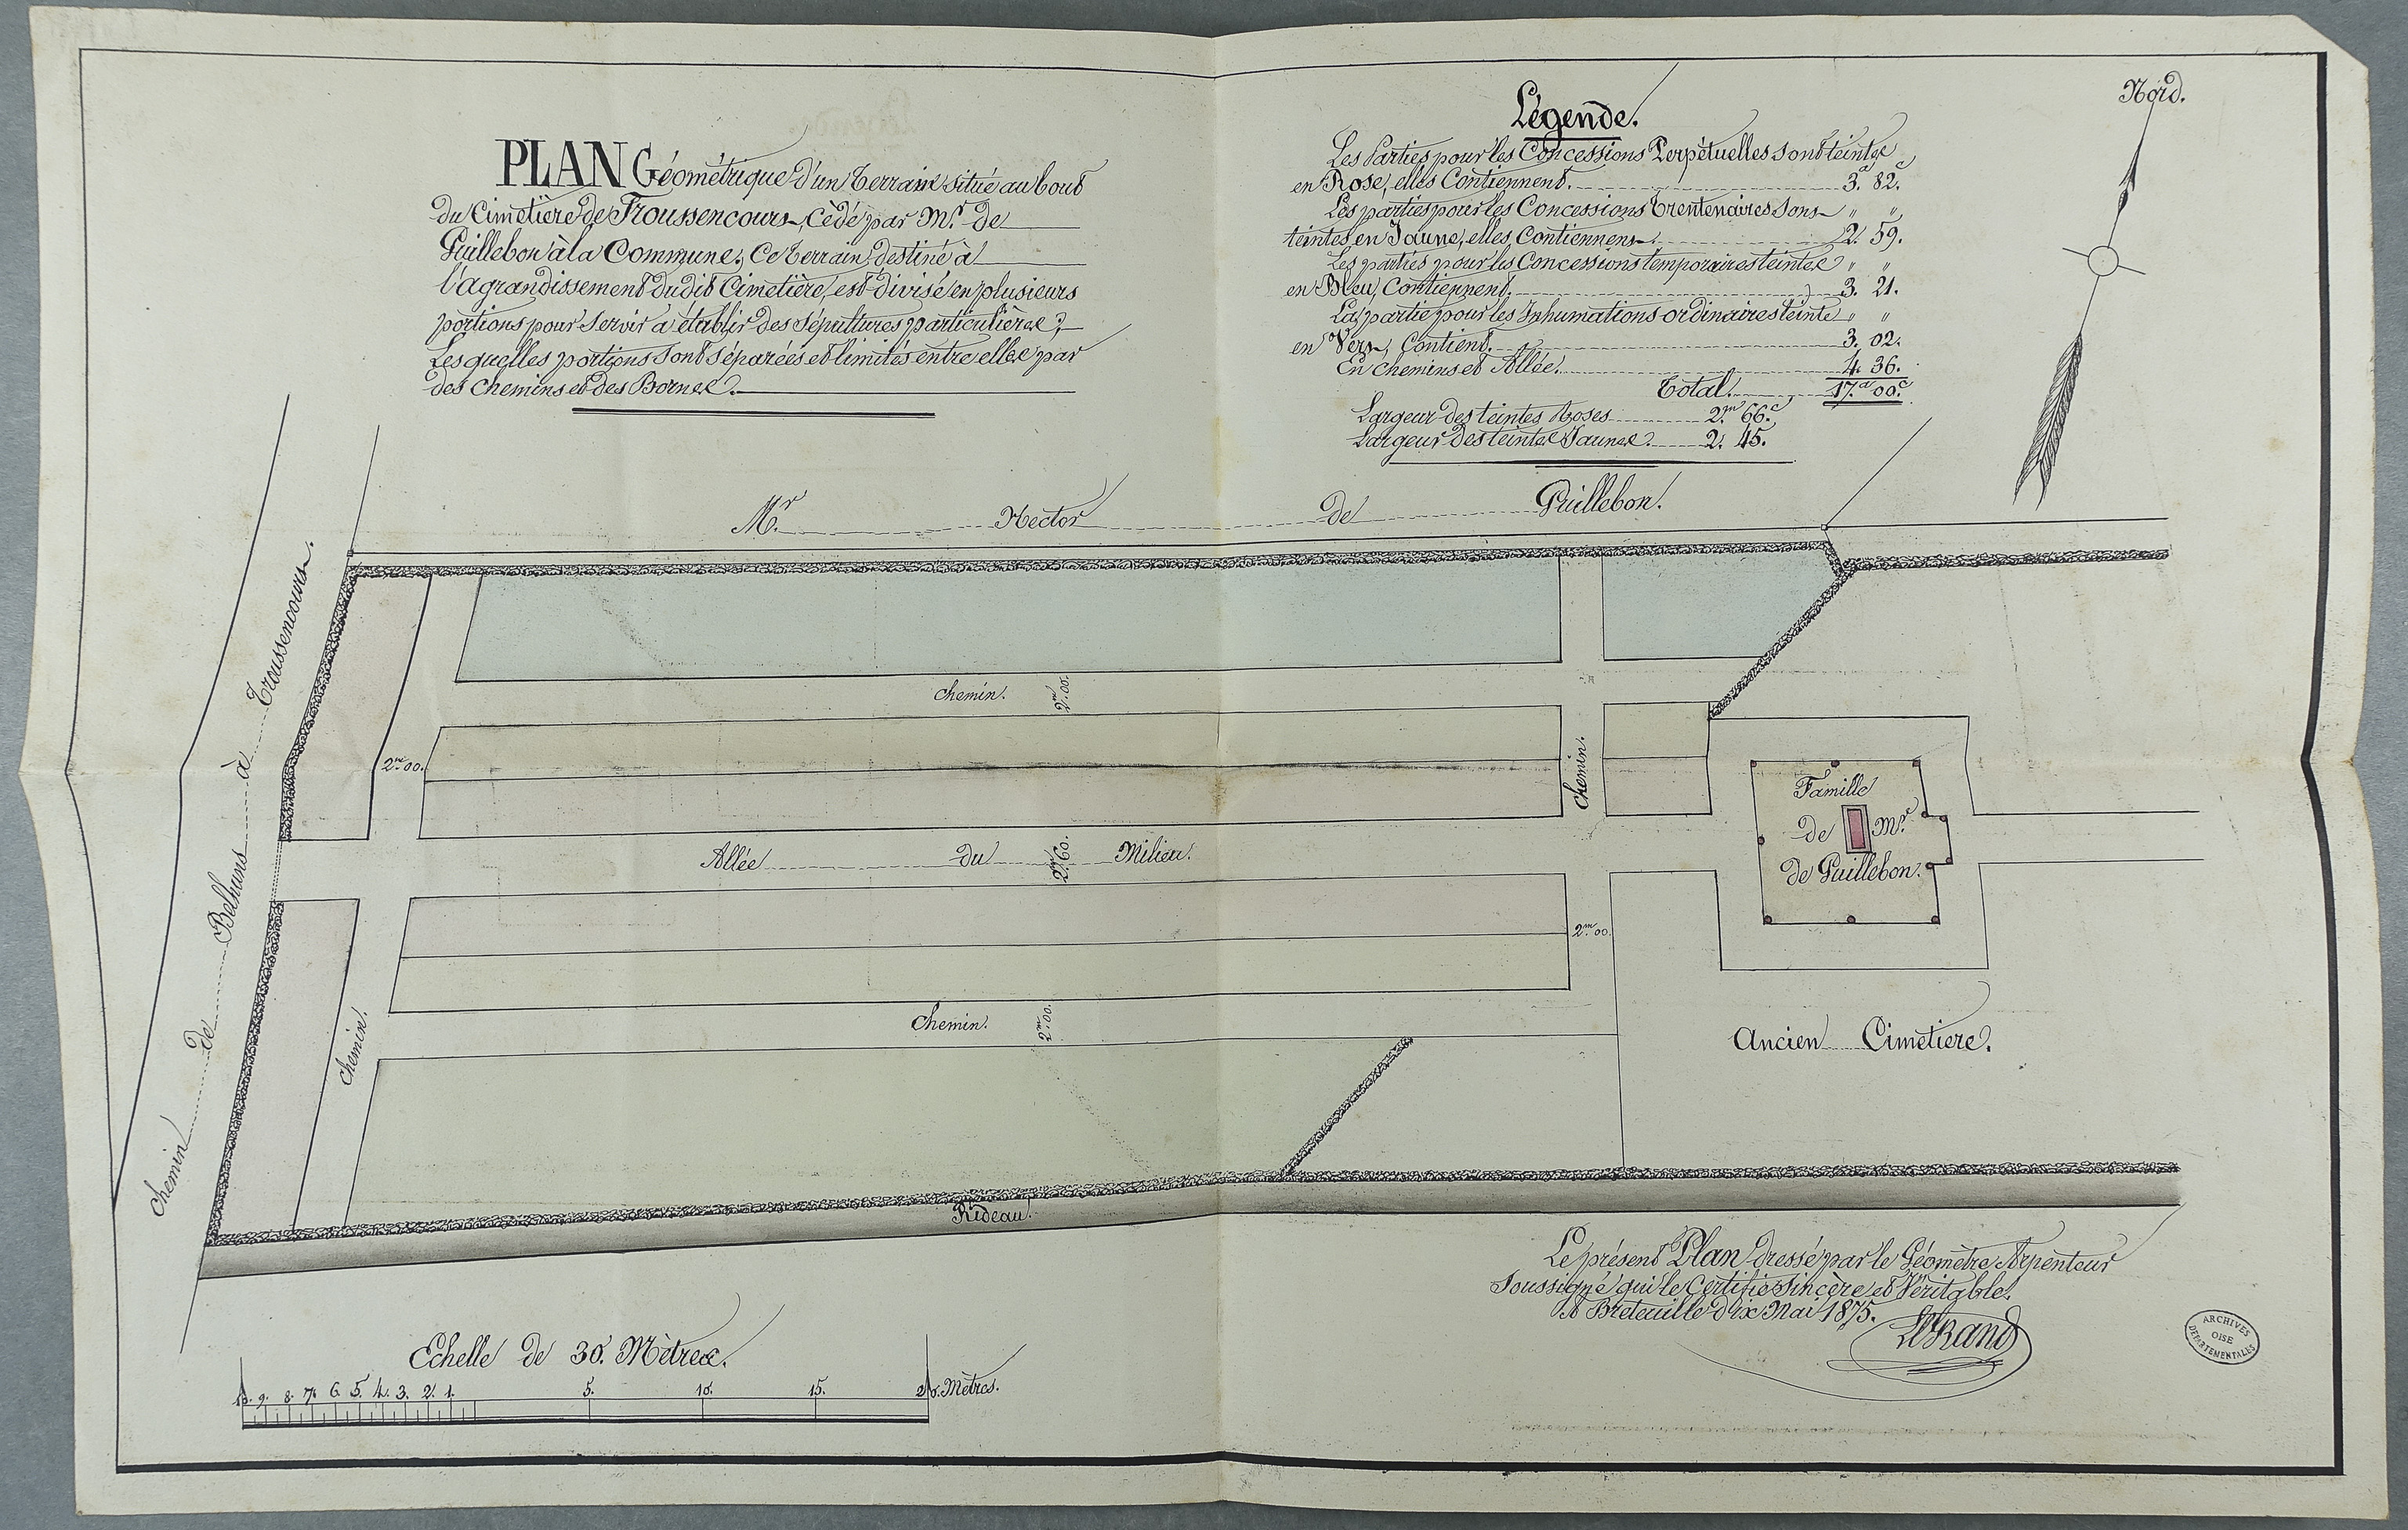 PLAN Géométrique d'un Terrain situé au bout
du Cimetière de Troussencourt, Cédé par Mr. de
Guillebon à la Commune; Ce terrain destiné à
l'agrandissement dudit Cimetière, est divisé en plusieurs
portions pour servir à établir des Sépultures particulières;
Lesquelles portions sont séparées et limités entre elles par
des chemins et des Bornes.
Légende.
Les Parties pour les Concessions Perpétuelles sont teintes
en Rose, elles Contiennent. 3a 82c
Les parties pour les Concessions trentenaires sont " "
teintes en Jaune, elles Contiennent. 2. 59.
Les parties pour les Concessions temporaires teintes " "
en Bleu, Contiennent. 3. 21.
La partie pour les Inhumations ordinaires teinte " "
en Vert, Contient. 3. 02.
En chemins et Allée. 4. 36.
Total. 17a 00c
Largeur des teintes Roses 2m 66c
Largeur des teintes Jaunes. 2. 45.
Nord.
Mr. Hector de Guillebon.
chemin de Belhuns à Troussencourt.
chemin. 2m 00.
2m 00.
chemin.
Allée du 2m 60. Milieu.
2m 00.
chemin. 2m 00.
chemin.
Famille
de Mr.
de Guillebon.
Ancien Cimetière.
Rideau.
Echelle de 30. Mètres.
10. 9. 8. 7. 6. 5. 4. 3. 2. 1. 5. 10. 15. 20. Mètres.
Le présent Plan dressé par le Géomètre Arpenteur
Soussigné qui le Certifie Sincère et Véritable.
A Breteuille dix Mai 1875.
ARCHIVES
OISE
DÉPARTEMENTALES